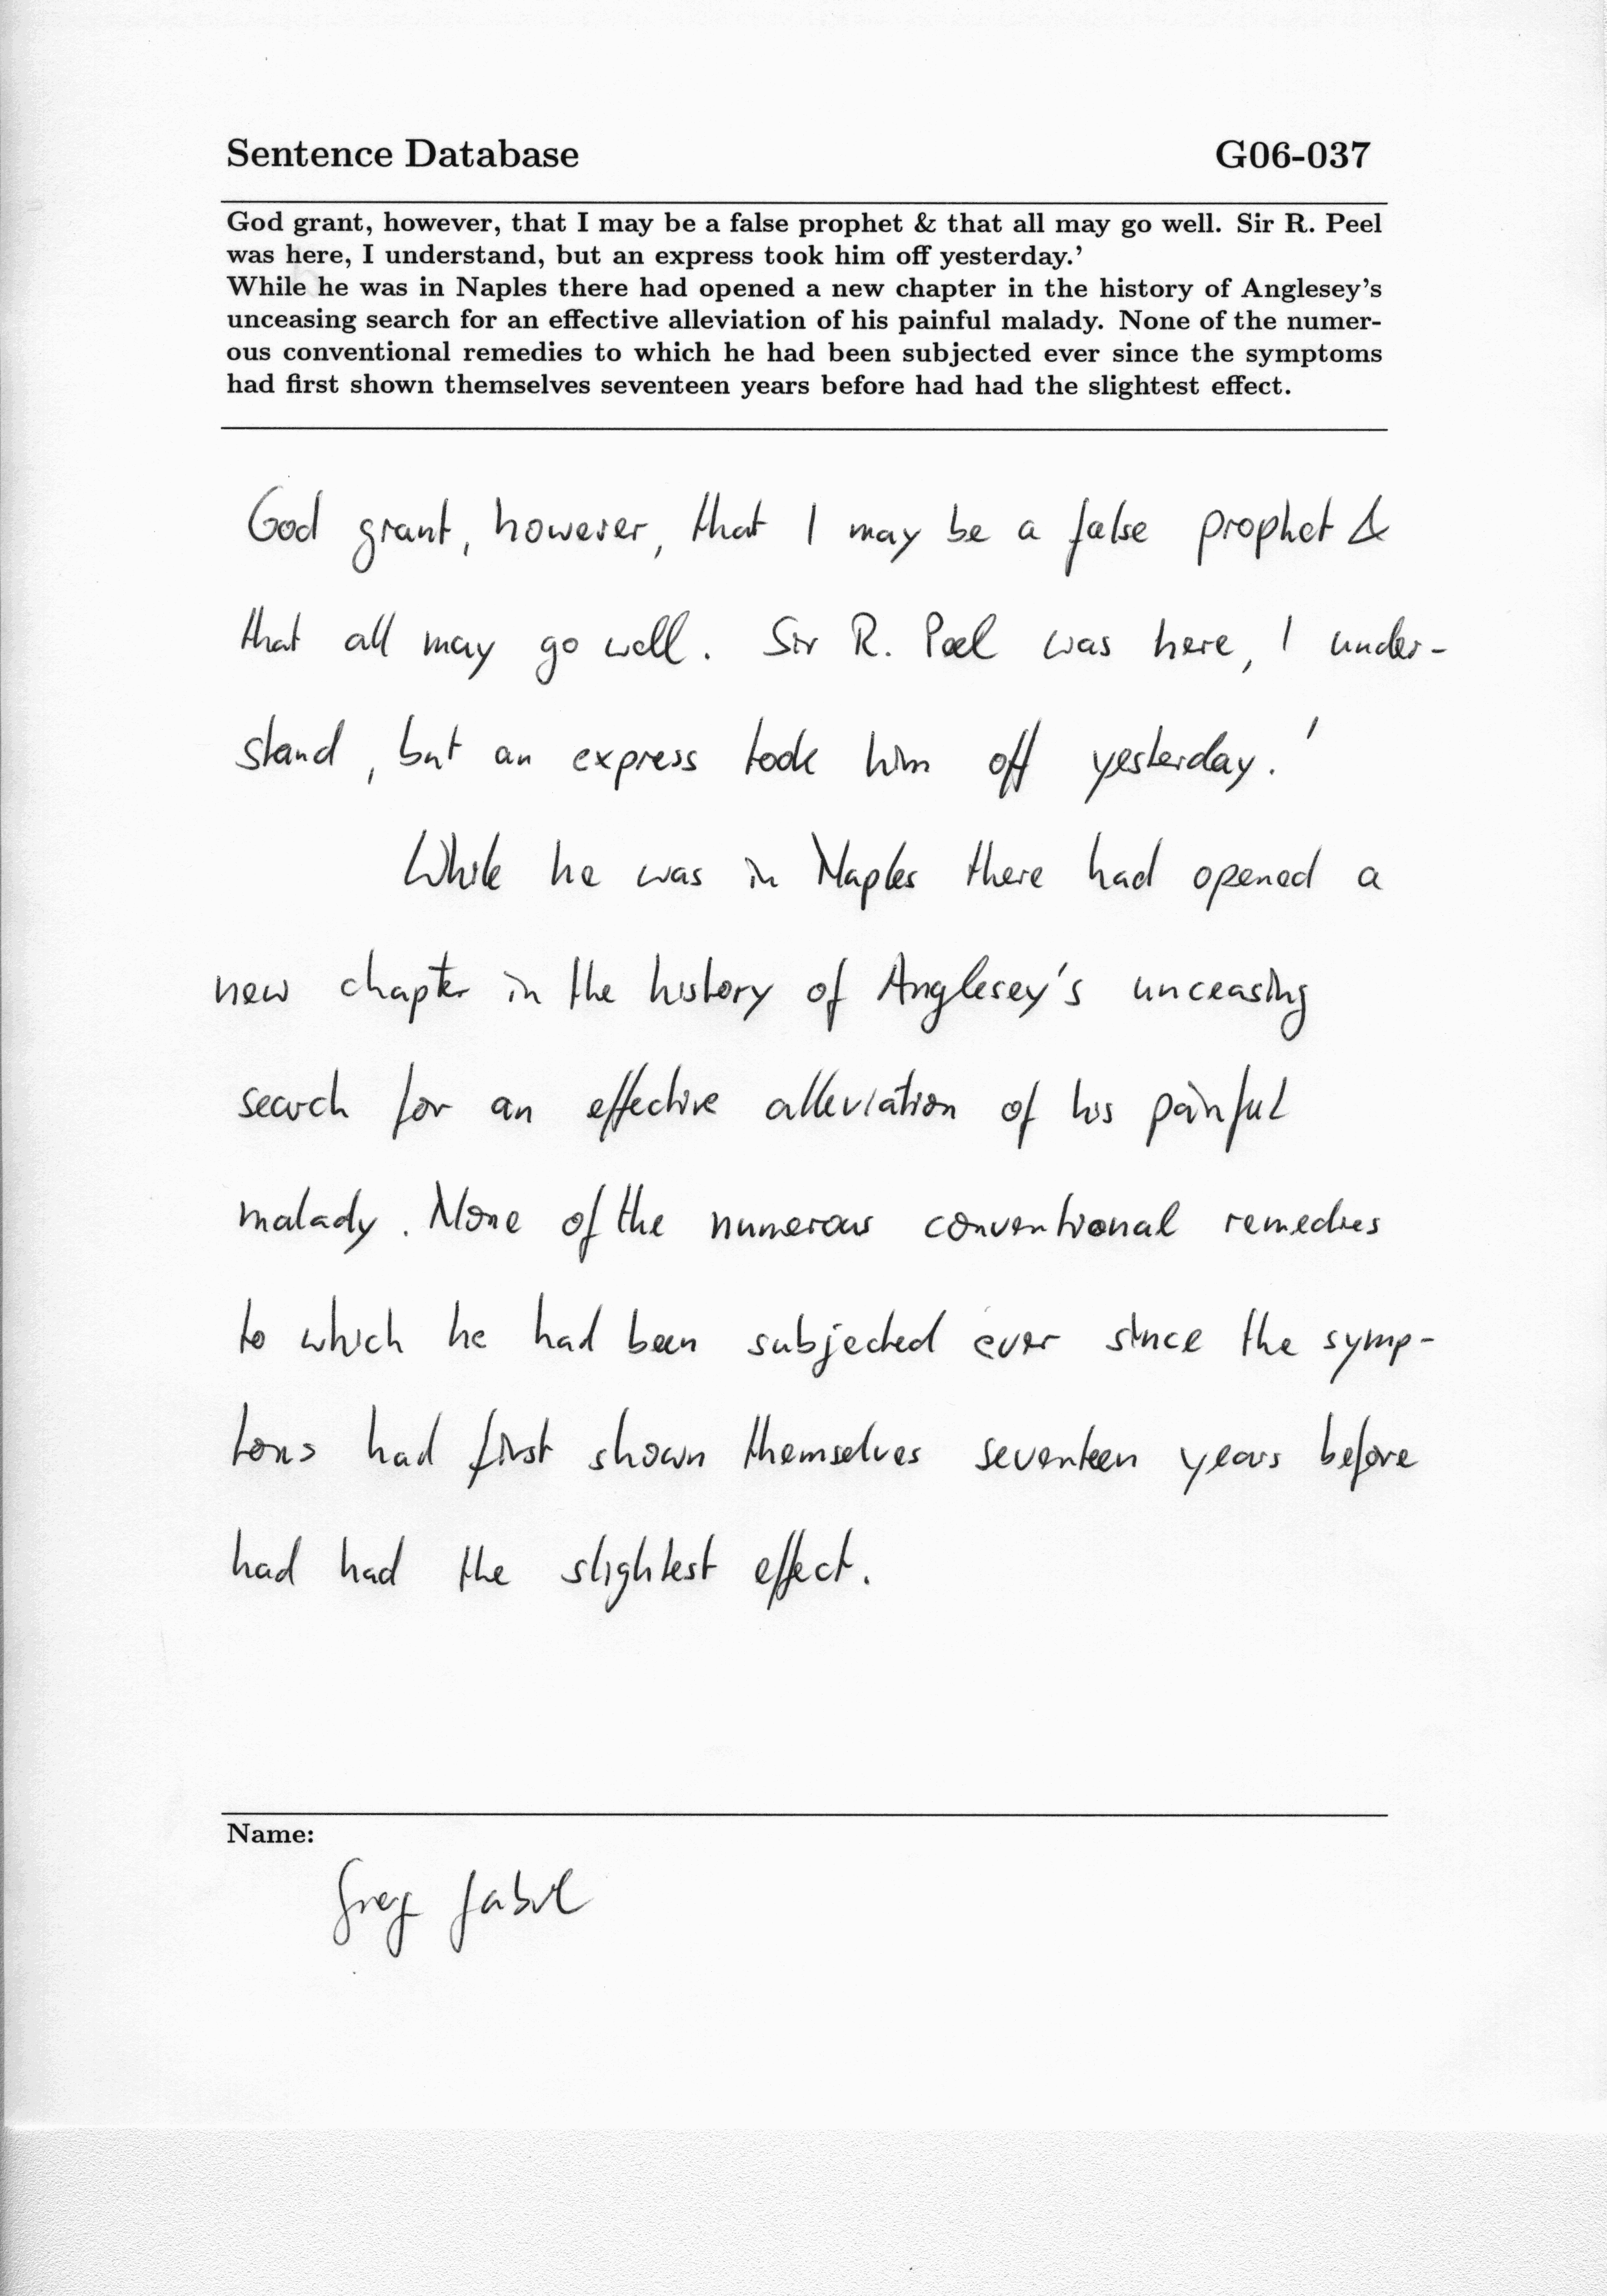 Sentence Database G06-037
God grant, however, that I may be a false prophet & that all may go well. Sir R. Peel
was here, I understand, but an express took him off yesterday.'
While he was in Naples there had opened a new chapter in the history of Anglesey's
unceasing search for an effective alleviation of his painful malady. None of the numer-
ous conventional remedies to which he had been subjected ever since the symptoms
had first shown themselves seventeen years before had had the slightest effect.
God grant, however, that I may be a false prophet &
that all may go well. Sir R. Peel was here, I under-
stand, but an express took him off yesterday.'
While he was in Naples there had opened a
new chapter in the history of Anglesey's unceasing
search for an effective alleviation of his painful
malady. None of the numerous conventional remedies
to which he had been subjected ever since the symp-
toms had first shown themselves seventeen years before
had had the slightest effect.
Name:
Greg